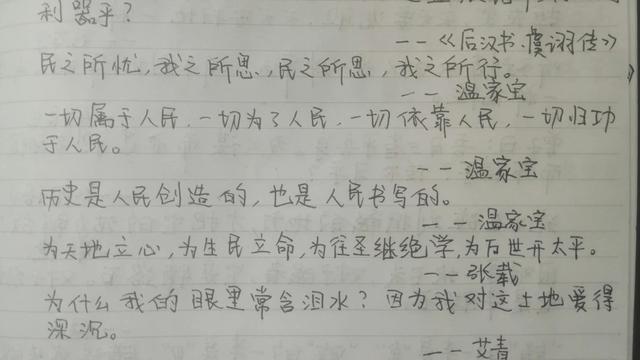 利器乎？
——《后汉书·虞诩传》
民之所忧，我之所思，民之所思，我之所行。
——温家宝
一切属于人民，一切为了人民，一切依靠人民，一切归功
于人民。
——温家宝
历史是人民创造的，也是人民书写的。
——温家宝
为天地立心，为生民立命，为往圣继绝学，为万世开太平。
——张载
为什么我的眼里常含泪水？因为我对这土地爱得
深沉。
——艾青